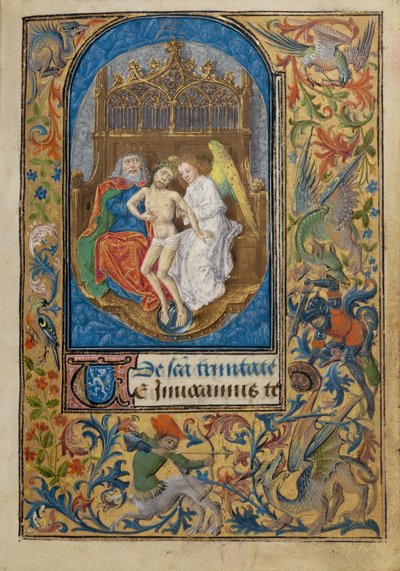 De sc̄a trinitate
TE inuocamus te